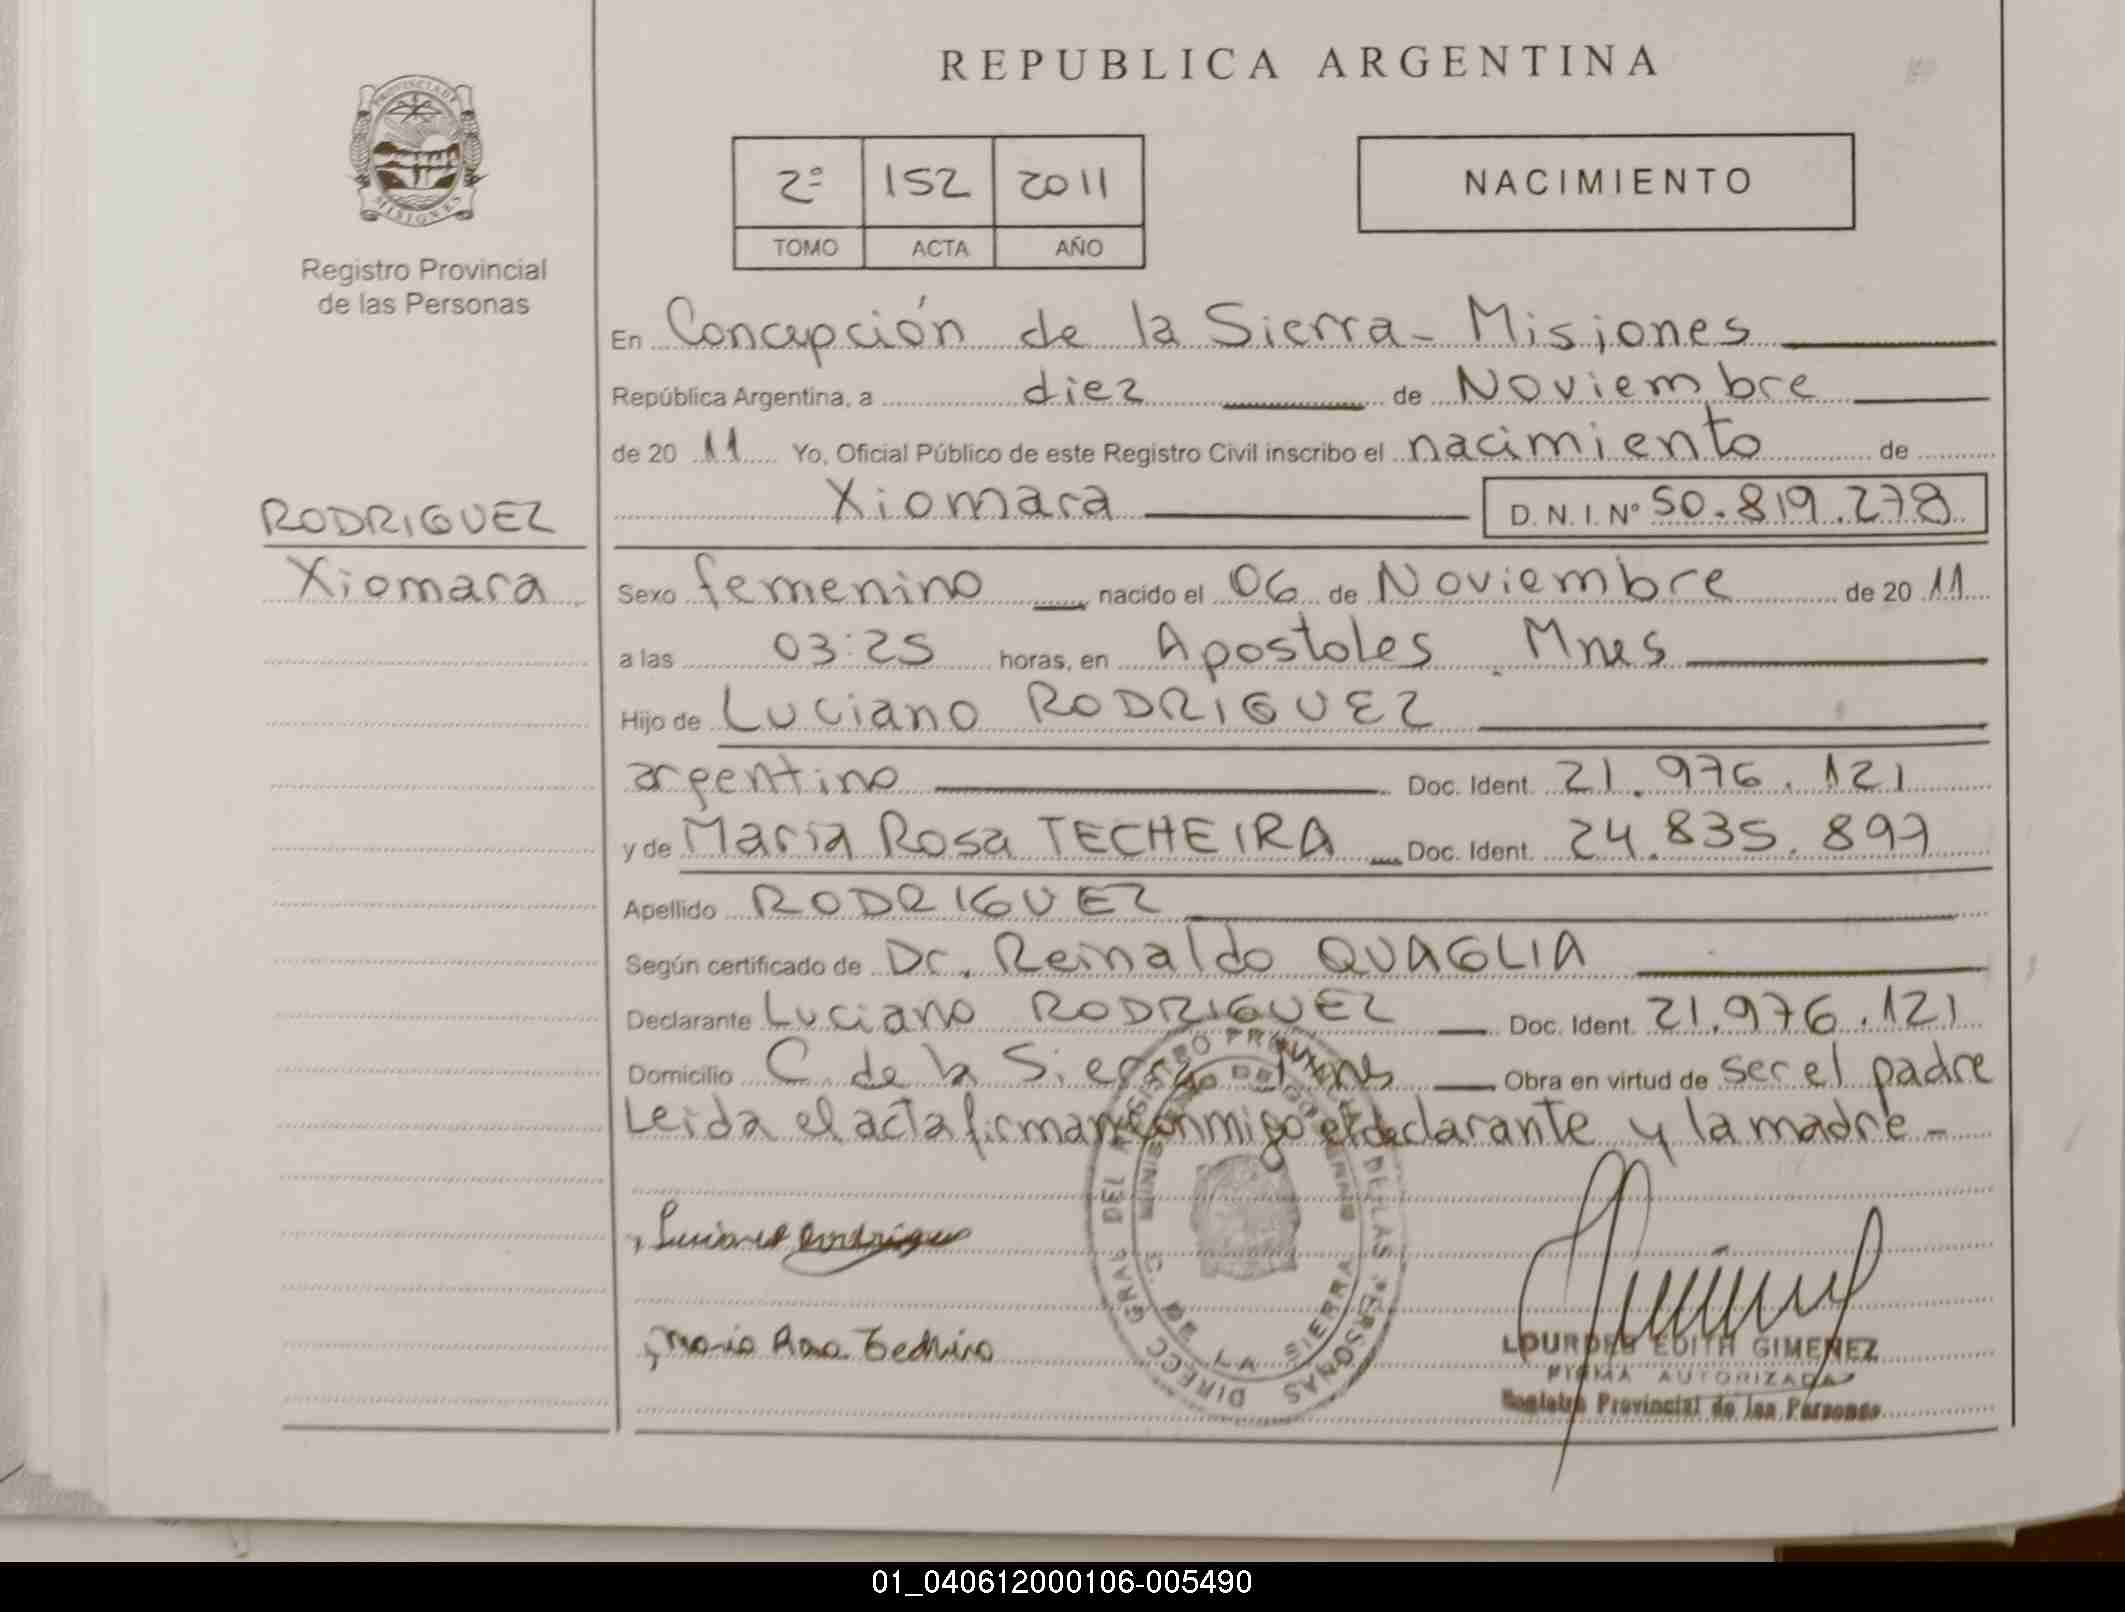 REPUBLICA ARGENTINA
PROVINCIA DE
MISIONES
Registro Provincial
de las Personas
2º 152 2011
TOMO ACTA AÑO
NACIMIENTO
En Concepción de la Sierra - Misiones
República Argentina, a diez de Noviembre
de 20 11 Yo, Oficial Público de este Registro Civil inscribo el nacimiento de
Xiomara D.N.I. Nº 50.819.278
RODRIGUEZ
Xiomara
Sexo femenino nacido el 06 de Noviembre de 20 11
a las 03:25 horas, en Apostoles Mnes
Hijo de Luciano RODRIGUEZ
argentino Doc. Ident. 21.976.121
y de Maria Rosa TECHEIRA Doc. Ident. 24.835.899
Apellido RODRIGUEZ
Según certificado de Dr. Reinaldo QUAGLIA
Declarante Luciano RODRIGUEZ Doc. Ident. 21.976.121
Domicilio C. de la Sierra Obra en virtud de ser el padre
Leida el acta firman conmigo el declarante y la madre -
DIRECC. GRAL. DEL REGISTRO PROVINCIAL DE LAS PERSONAS
C. DE LA SIERRA
Luciano Rodriguez
Maria Rosa Techeira
LOURDES EDITH GIMENEZ
FIRMA AUTORIZADA
Registro Provincial de las Personas
01_040612000106-005490